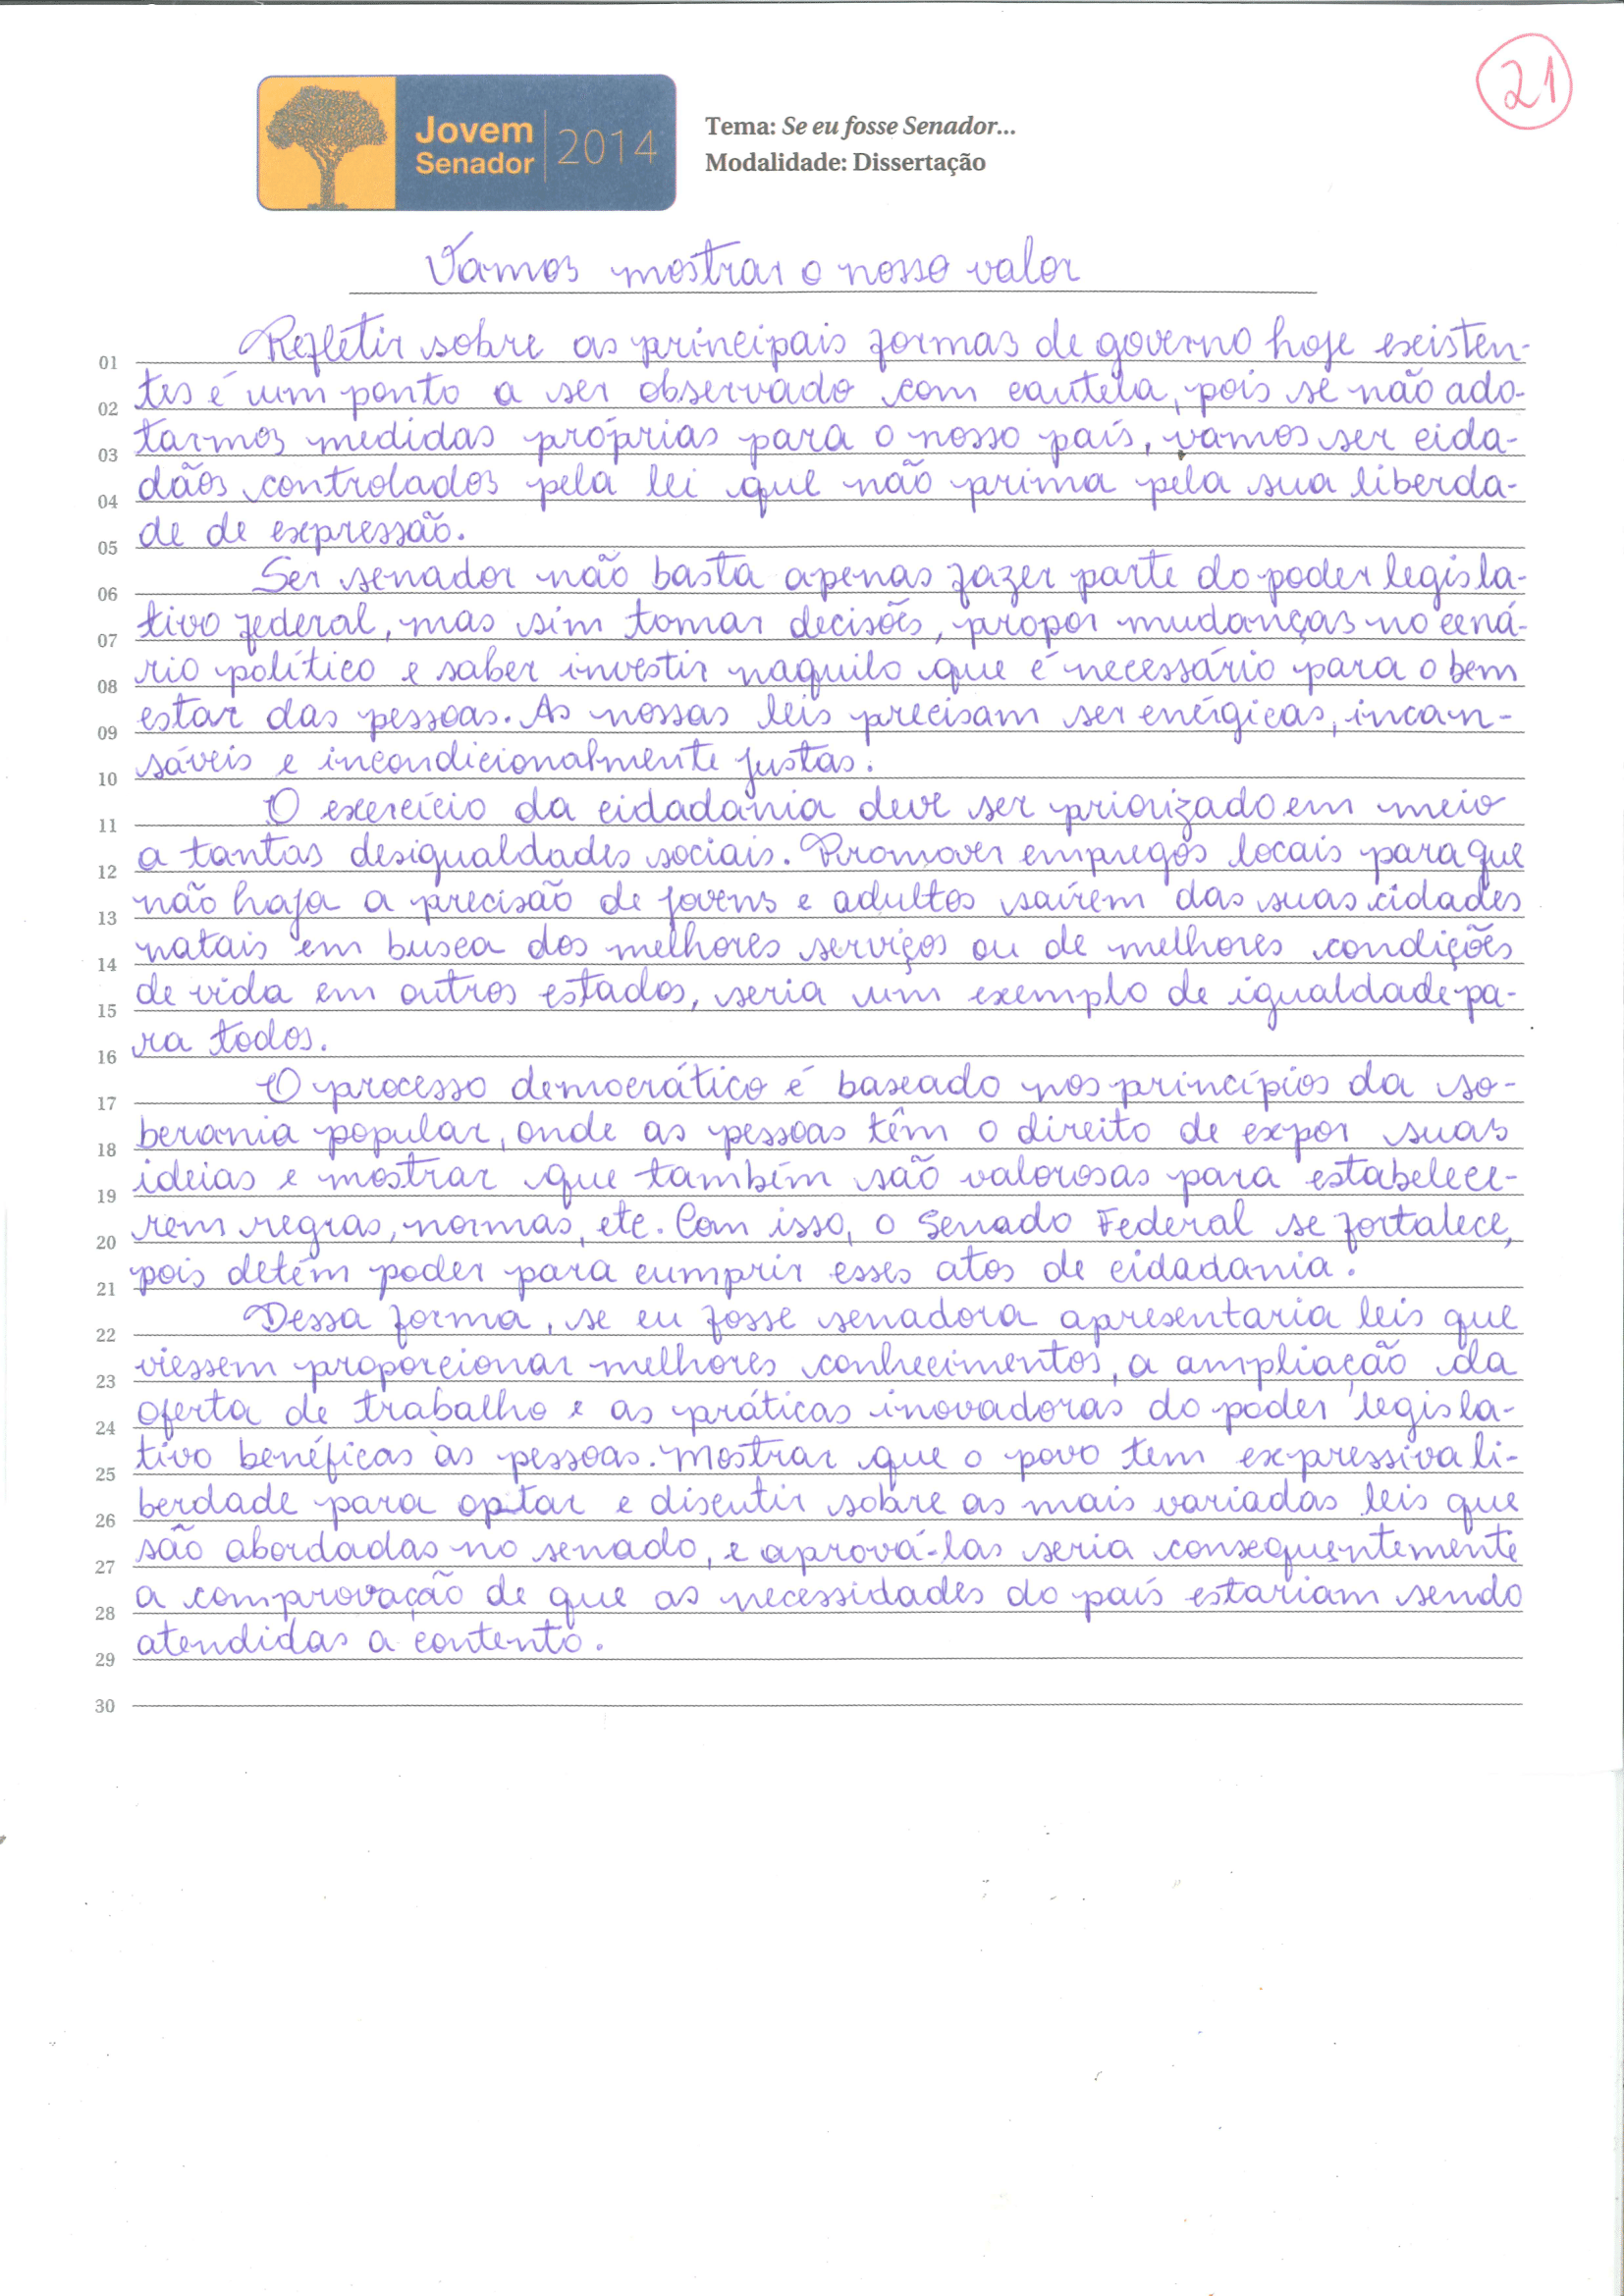 21
Jovem
Senador
2014
Tema: Se eu fosse Senador...
Modalidade: Dissertação
Vamos mostrar o nosso valor
01 Refletir sobre as principais formas de governo hoje existen-
02 tes é um ponto a ser observado com cautela, pois se não ado-
03 tarmos medidas próprias para o nosso país, vamos ser cida-
04 dãos controlados pela lei que não prima pela sua liberda-
05 de de expressão.
06 Ser senador não basta apenas fazer parte do poder legisla-
07 tivo federal, mas sim tomar decisões, propor mudanças no cená-
08 rio político e saber investir naquilo que é necessário para o bem
09 estar das pessoas. As nossas leis precisam ser enérgicas, incan-
10 sáveis e incondicionalmente justas.
11 O exercício da cidadania deve ser priorizado em meio
12 a tantas desigualdades sociais. Promover empregos locais para que
13 não haja a precisão de jovens e adultos saírem das suas cidades
14 natais em busca dos melhores serviços ou de melhores condições
15 de vida em outros estados, seria um exemplo de igualdade pa-
16 ra todos.
17 O processo democrático é baseado nos princípios da so-
18 berania popular, onde as pessoas têm o direito de expor suas
19 ideias e mostrar que também são valorosas para estabelece-
20 rem regras, normas, etc. Com isso, o Senado Federal se fortalece,
21 pois detém poder para cumprir esses atos de cidadania.
22 Dessa forma, se eu fosse senadora apresentaria leis que
23 viessem proporcionar melhores conhecimentos, a ampliação da
24 oferta de trabalho e as práticas inovadoras do poder legisla-
25 tivo benéficas às pessoas. Mostrar que o povo tem expressiva li-
26 berdade para optar e discutir sobre as mais variadas leis que
27 são abordadas no senado, e aprová-las seria consequentemente
28 a comprovação de que as necessidades do país estariam sendo
29 atendidas a contento.
30